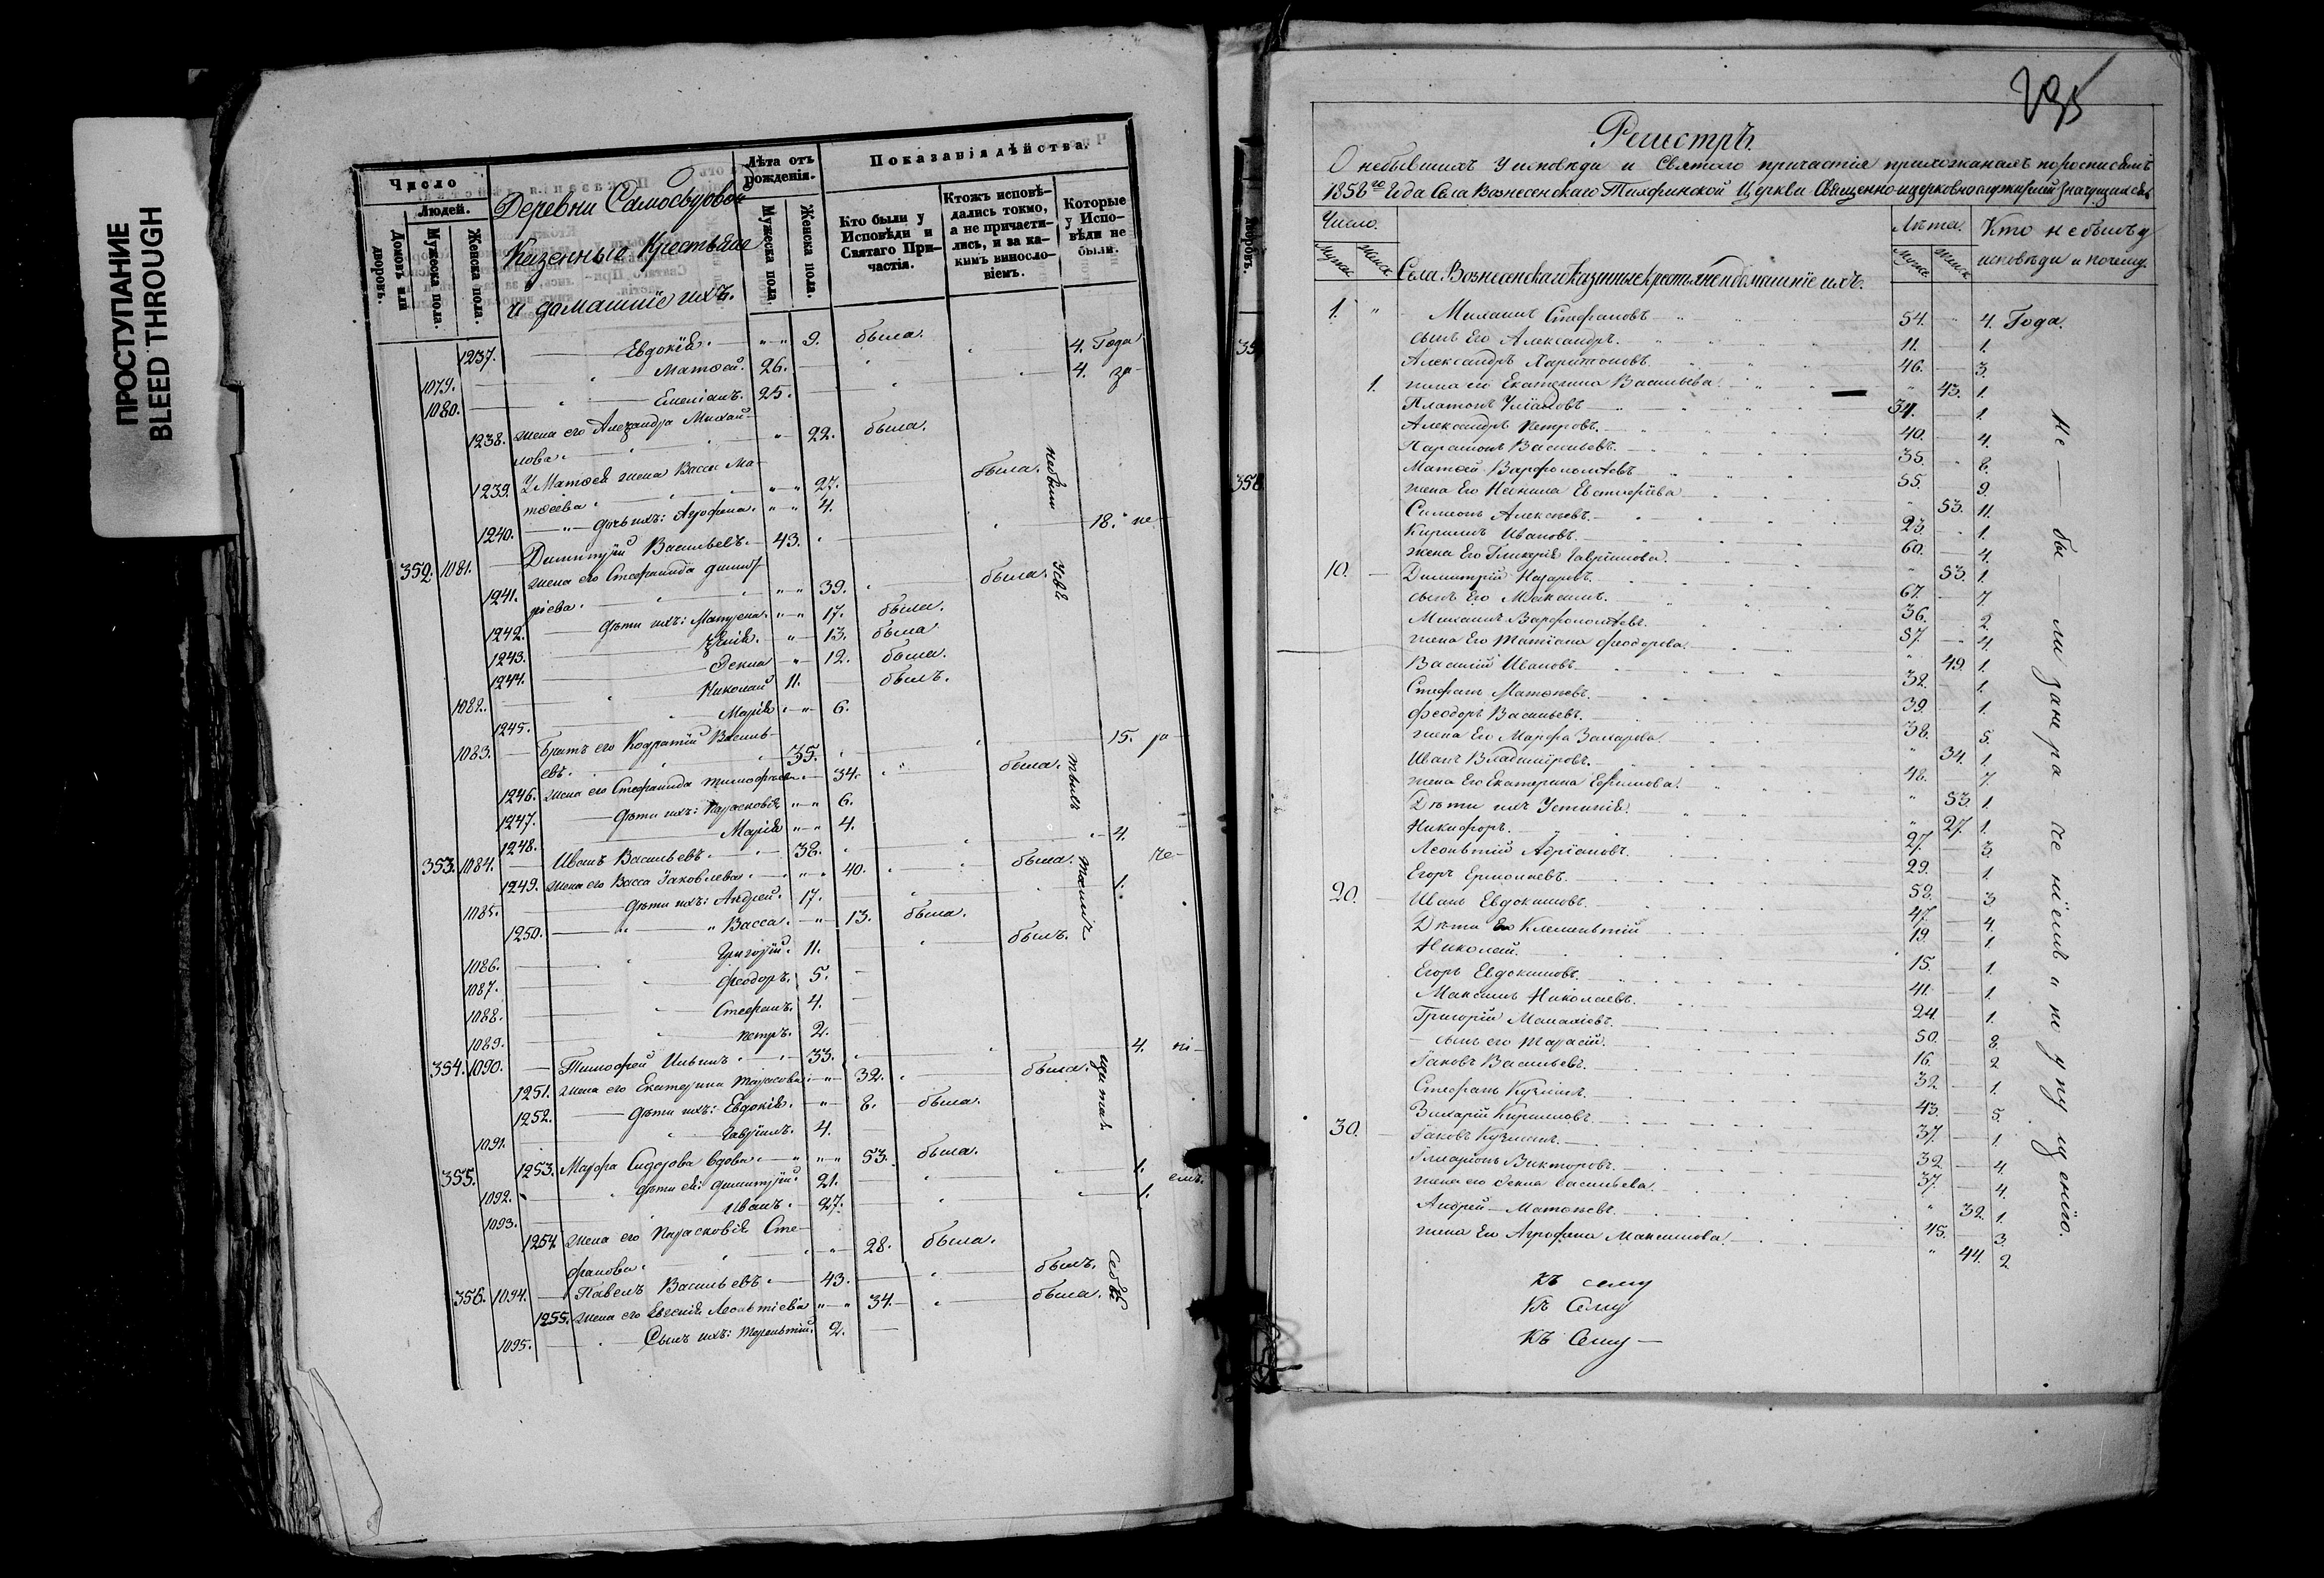 ПРОСТУПАНИЕ
BLEED THROUGH
Число
Людей.
Домовъ или дворовъ.
Мужеска пола.
Женска пола.
Деревни
Казенные Крестьяне
и домашніе ихъ.
Лѣта отъ рожденія.
Мужеска пола.
Женска пола.
Показанія дѣйства.
Кто были у Исповѣди и Святаго Причастія.
Ктожъ исповѣдались токмо, а не причастились, и за какимъ винословіемъ.
Которые у Исповѣди не были.
1237. Евдокія. 9. была.
1079. Матѳей. 26. 4. Года
1080. Емеліанъ. 25. 4. за-
1238. жена его Александра Михай-
лова. 22. была.
1239. У Матѳея жена Васса Ма-
тѳеева 27. была.
1240. дочь ихъ: Агрофена. 4.
352. 1081. Димитрій Васильевъ. 43. 18. не
1241. жена его Стефанида Димит-
ріева. 39. была.
1242. Дѣти ихъ: Матрена. 17. была.
1243. 13. была
1244. Ѳекла 12. была.
1082. Николай 11. былъ.
1245. Марія 6.
1083. Братъ его Кодратій Василь-
евъ. 35. 15. ра
1246. жена его Стефанида Тимофеева 34. была.
1247. Дѣти ихъ: Парасковія 6.
1248. Марія 4.
353. 1084. Иванъ Васильевъ. 38. 4. че-
1249. жена его Васса Іаковлева 40. была.
1085. Дѣти ихъ: Андрей. 17. 1.
1250. Васса. 13. была.
1086. Григорій. 11. былъ.
1087. Ѳеодоръ. 5.
1088. Стефанъ. 4.
1089. Петръ. 2.
354. 1090. Тимофей Ильинъ 33. 4. ні-
1251. жена его Екатерина Тарасова 32. была.
1252. Дѣти ихъ: Евдокія. 8. была.
1091. Гавріилъ. 4.
355. 1253. Марфа Сидорова вдова 53. была.
1092. Дѣти ея: Димитрій 21. 1. емъ.
1093. Иванъ. 27. 1.
1254. жена его Парасковія Сте-
фанова 28. была.
356. 1094. Павелъ Васильевъ 43. былъ.
1255. жена его Евгенія Леонтіева 34. была.
1095. Сынъ ихъ: Терентій. 2.
295
Регистръ
О небывшихъ у исповѣди и Святаго причастія прихожанахъ по росписямъ
1858го Года Села Вознесенскаго Тихфинской Церкви Священно и церковнослужителей
Число.
Мужс. Женс.
Села Вознесенскаго казенные крестьяне и домашніе ихъ.
Лѣта.
Мужс. Женс.
Кто не былъ у
исповѣди и почему.
1. Михаилъ Стефановъ 54. 4. Года.
сынъ Его Александръ. 11. 1.
Александръ Харитоновъ 46. 3.
1. жена его Екатерина Васильева. 43. 1.
Платонъ 34. 1.
Александръ Петровъ. 40. 4.
Парамонъ Васильевъ. 35. 8.
Матѳей Варфоломѣевъ 55. 9.
жена Его Евстафіева 53. 11.
Симеонъ Алексѣевъ. 23. 1.
Кириллъ Ивановъ. 60. 4.
жена Его Гликерія Гавріилова. 53. 1.
10. Димитрій Назаровъ. 67. 7.
сынъ Его Максимъ. 36. 2.
Михаилъ Варфоломѣевъ. 57. 4.
жена Его Татіана Ѳеодорова. 49. 1.
Василій Ивановъ 32. 1.
Стефанъ Матѳеевъ. 39. 1.
Ѳеодоръ Васильевъ. 38. 5.
жена Его Марфа Захарова. 34. 1.
Иванъ Владиміровъ. 48. 7.
жена Его Екатерина Ефимова. 53. 1.
Дѣти ихъ Устинія. 27. 1.
Никифоръ. 27. 3.
Леонтій Адріановъ. 29. 1.
Егоръ Ермолаевъ. 52. 3.
20. Иванъ Евдокимовъ. 47. 4.
Дѣти Его Клементій 19. 1.
Николай. 15. 1.
Егоръ Евдокимовъ. 41. 1.
Максимъ Николаевъ. 24. 1.
Григорій Малахіевъ. 50. 8.
сынъ его Тарасій. 16. 2
Іаковъ Васильевъ. 32. 1.
Стефанъ Кузминъ. 43. 5.
Захарій Кирилловъ. 37. 1.
30. Іаковъ Кузминъ. 32. 4.
Иларіонъ Викторовъ. 37. 4.
жена его Ѳекла Васильева. 32. 1.
Андрей Матѳеевъ. 45. 3.
жена Его Агрофена Максимова. 44. 2.
Къ сему
Къ Сему
Къ Сему
Не бы ли за не ра че ніемъ и по у пу щенію.